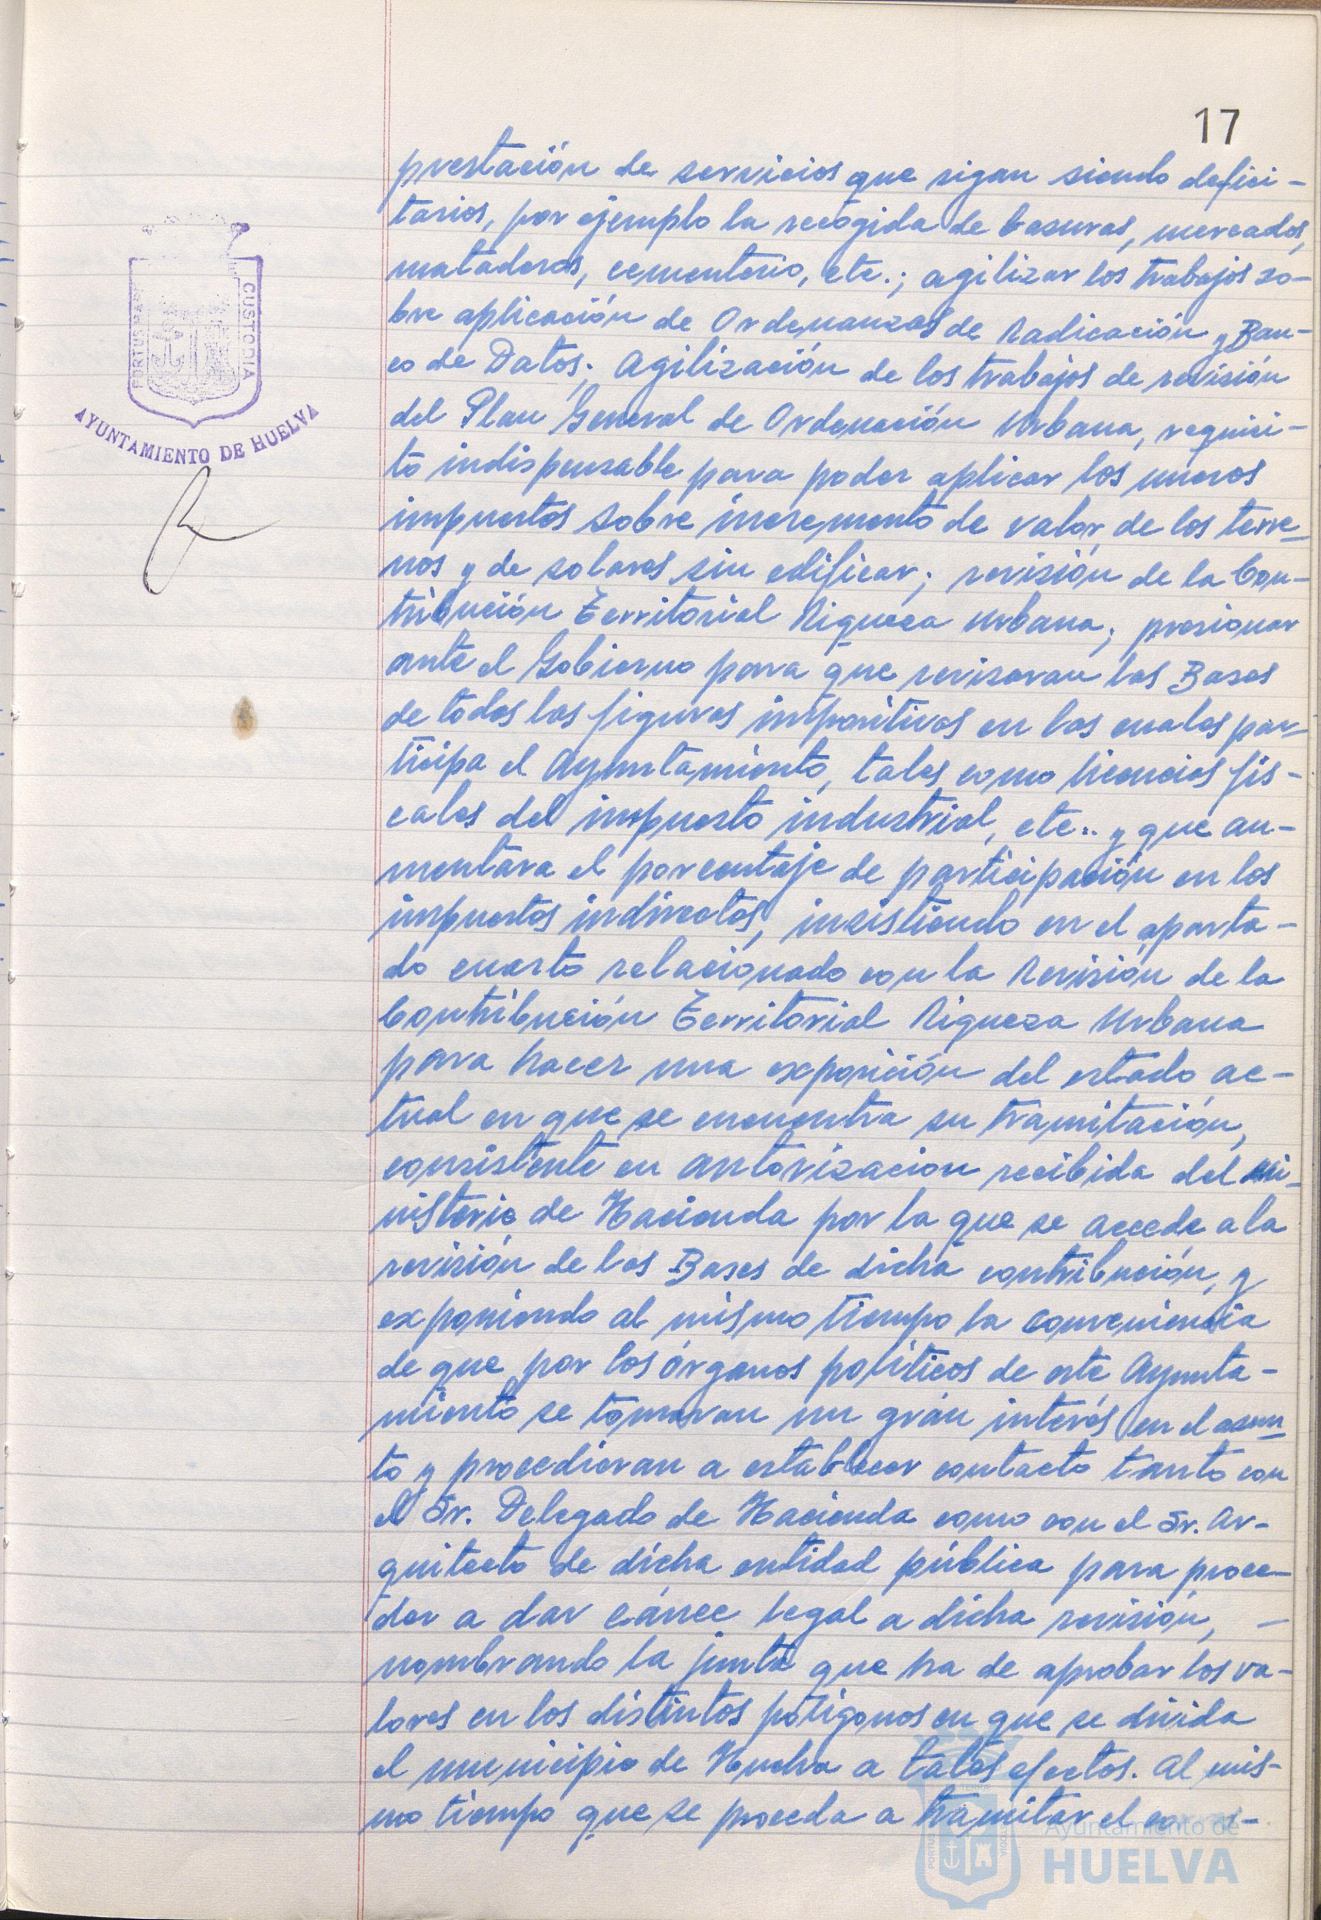 17
prestación de servicios que sigan siendo defici-
tarios, por ejemplo la recogida de basuras, mercados,
mataderos, cementerio, etc.; agilizar los trabajos so-
bre aplicación de Ordenanzas de Radicación y Ban-
co de Datos; Agilización de los trabajos de revisión
del Plan General de Ordenación Urbana, requisi-
to indispensable para poder aplicar los nuevos
impuestos sobre incremento de valor de los terre-
nos y de solares sin edificar; revisión de la Con-
tribución Territorial Riqueza Urbana; presionar
ante el Gobierno para que revisaran las Bases
de todas las figuras impositivas en las cuales par-
ticipa el Ayuntamiento, tales como licencias fis-
cales del impuesto industrial, etc.. y que au-
mentara el porcentaje de participación en los
impuestos indirectos, insistiendo en el aparta-
do cuarto relacionado con la Revisión de la
Contribución Territorial Riqueza Urbana
para hacer una exposición del estado ac-
tual en que se encuentra su tramitación,
consistente en autorizacion recibida del Mi-
nisterio de Hacienda por la que se accede a la
revisión de las Bases de dicha contribución, y
exponiendo al mismo tiempo la conveniencia
de que por los órganos políticos de este Ayunta-
miento se tomaran un gran interés en el asun
to y procedieran a establecer contacto tanto con
el Sr. Delegado de Hacienda como con el Sr. Ar-
quitecto de dicha entidad pública para proce-
der a dar cauce legal a dicha revisión, -
nombrando la junta que ha de aprobar los va-
lores en los distintos polígonos en que se divida
el municipio de Huelva a tales efectos. Al mis-
mo tiempo que se proceda a tramitar el
PORTUS MARIS
CUSTODIA
AYUNTAMIENTO DE HUELVA
Ayuntamiento de
HUELVA